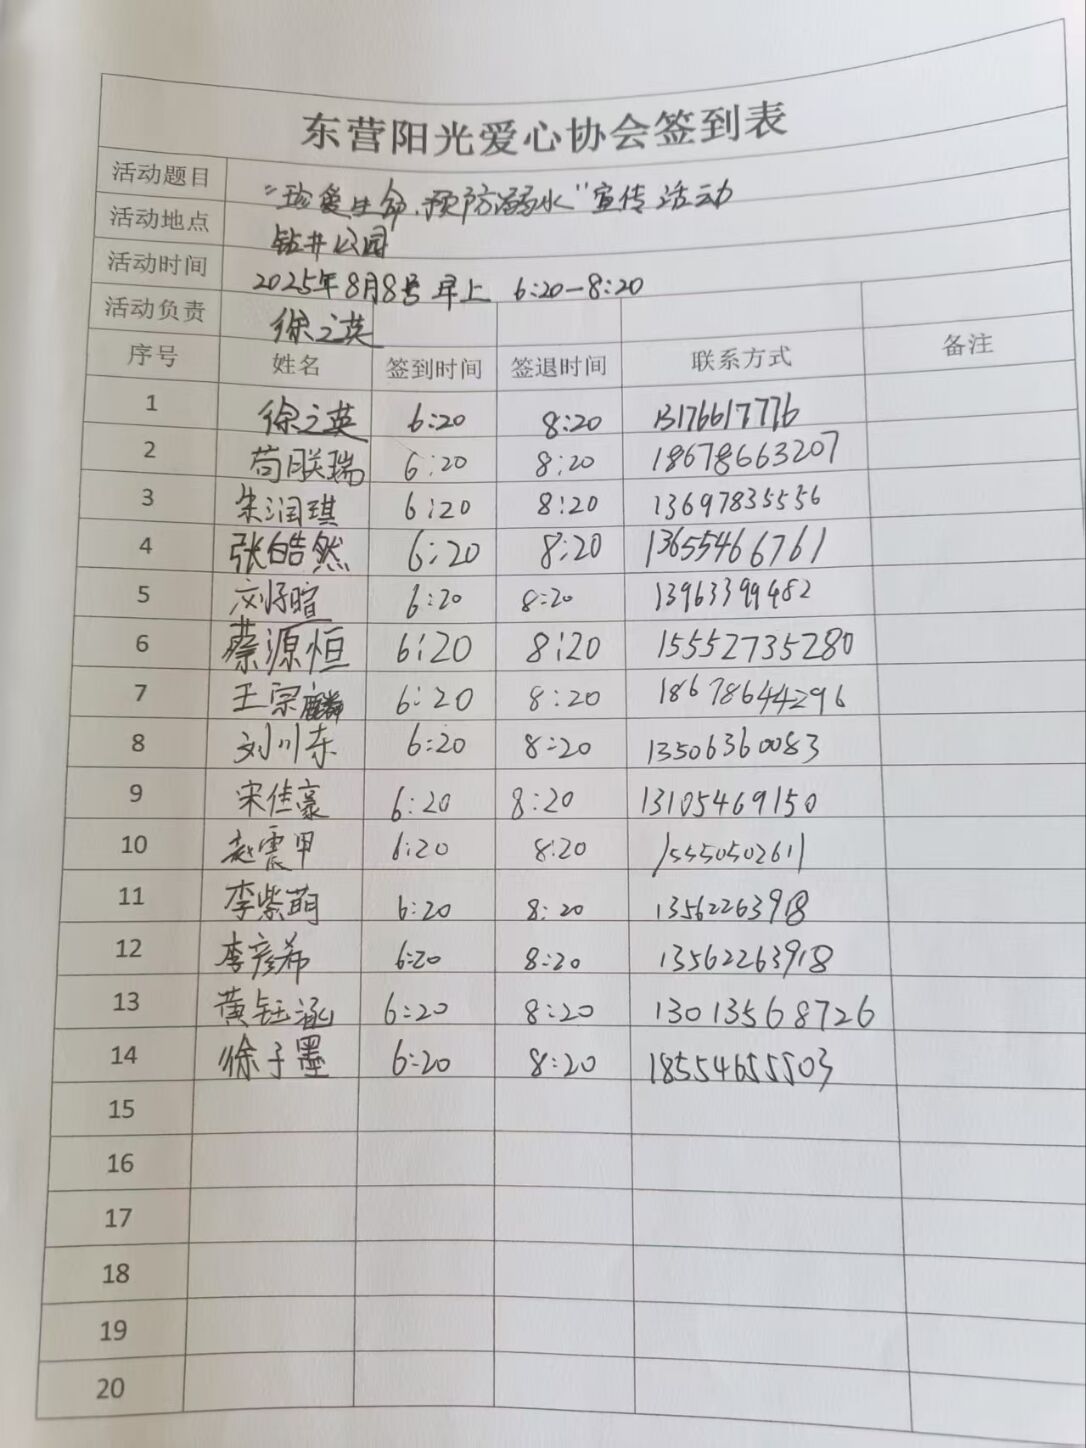 东营阳光爱心协会签到表
活动题目 “珍爱生命、预防溺水”宣传活动
活动地点 钻井公园
活动时间 2025年8月8号 早上 6:20-8:20
活动负责 徐之英
序号 姓名 签到时间 签退时间 联系方式 备注
1 徐之英 6:20 8:20 13176617776
2 苟联瑞 6:20 8:20 18678663207
3 朱润琪 6:20 8:20 13697835556
4 张皓然 6:20 8:20 13655466761
5 刘子暄 6:20 8:20 13963399482
6 蔡源恒 6:20 8:20 15552735280
7 王宗麟 6:20 8:20 18678644296
8 刘川东 6:20 8:20 13506360083
9 宋佳豪 6:20 8:20 13105469150
10 赵震甲 6:20 8:20 15550502611
11 李紫萌 6:20 8:20 13562263918
12 李彦希 6:20 8:20 13562263918
13 黄钰涵 6:20 8:20 13013568726
14 徐子墨 6:20 8:20 18554655503
15
16
17
18
19
20